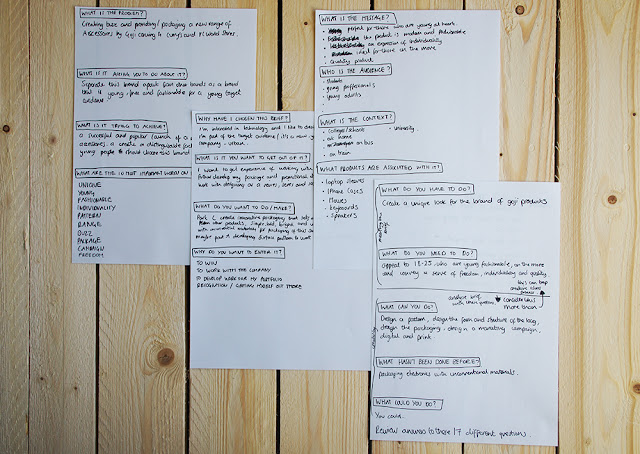 WHAT IS THE PROBLEM?
Creating buzz and promoting/packaging a new range of
Accessories by Goji coming to Currys and PC World stores.
WHAT IS IT ASKING YOU TO DO ABOUT IT?
Separate this brand apart from other brands as a brand
that is young, free and fashionable for a young target
audience
WHAT IS IT TRYING TO ACHIEVE?
a successful and popular launch of a
accessories, to create a distinguishable
young people should choose this brand
WHAT ARE THE 10 MOST IMPORTANT WORDS ON
UNIQUE
YOUNG
FASHIONABLE
INDIVIDUALITY
PATTERN
RANGE
BUZZ
PACKAGE
CAMPAIGN
FREEDOM
WHY HAVE I CHOSEN THIS BRIEF?
I'm interested in technology and I like to
I'm part of the target audience / it's a
company - urban.
WHAT IS IT YOU WANT TO GET OUT OF IT?
I want to get experience of working with
further develop my package and promotional
work with designing as a
WHAT DO YOU WANT TO DO/MAKE?
Pack &, create innovative packaging that sets
from other products. Simple, bold, bright and
with unconventional materials for packaging of this
maybe part & developing further pattern & work
WHY DO YOU WANT TO ENTER IT?
TO WIN
TO WORK WITH THE COMPANY
TO DEVELOP WORK FOR MY PORTFOLIO
RECOGNITION / GETTING MYSELF OUT THERE
WHAT IS THE MESSAGE?
• project for those who are young at heart.
• the product is modern and fashionable
• an expression of individuality
• ideal for those on the move
• Quality product
WHO IS THE AUDIENCE?
• students
• young professionals
• young adults
WHAT IS THE CONTEXT?
• college/school • university
• at home
• on bus
• on train
WHAT PRODUCTS ARE ASSOCIATED WITH IT?
• laptop sleeves
• iPhone cases
• Mouses
• keyboards
• speakers
WHAT DO YOU HAVE TO DO?
Create a unique look for the brand of goji products
WHAT DO YOU NEED TO DO?
appeal to 18-25, who are young, fashionable, on the move
and convey a sense of freedom, individuality and quality.
WHAT CAN YOU DO?
Design a pattern, design the form and structure of the bag,
design the packaging, design a marketing campaign,
digital and print.
WHAT HASN'T BEEN DONE BEFORE?
packaging electronics with unconventional materials.
WHAT COULD YOU DO?
You could...
Review answers to these 17 different questions.